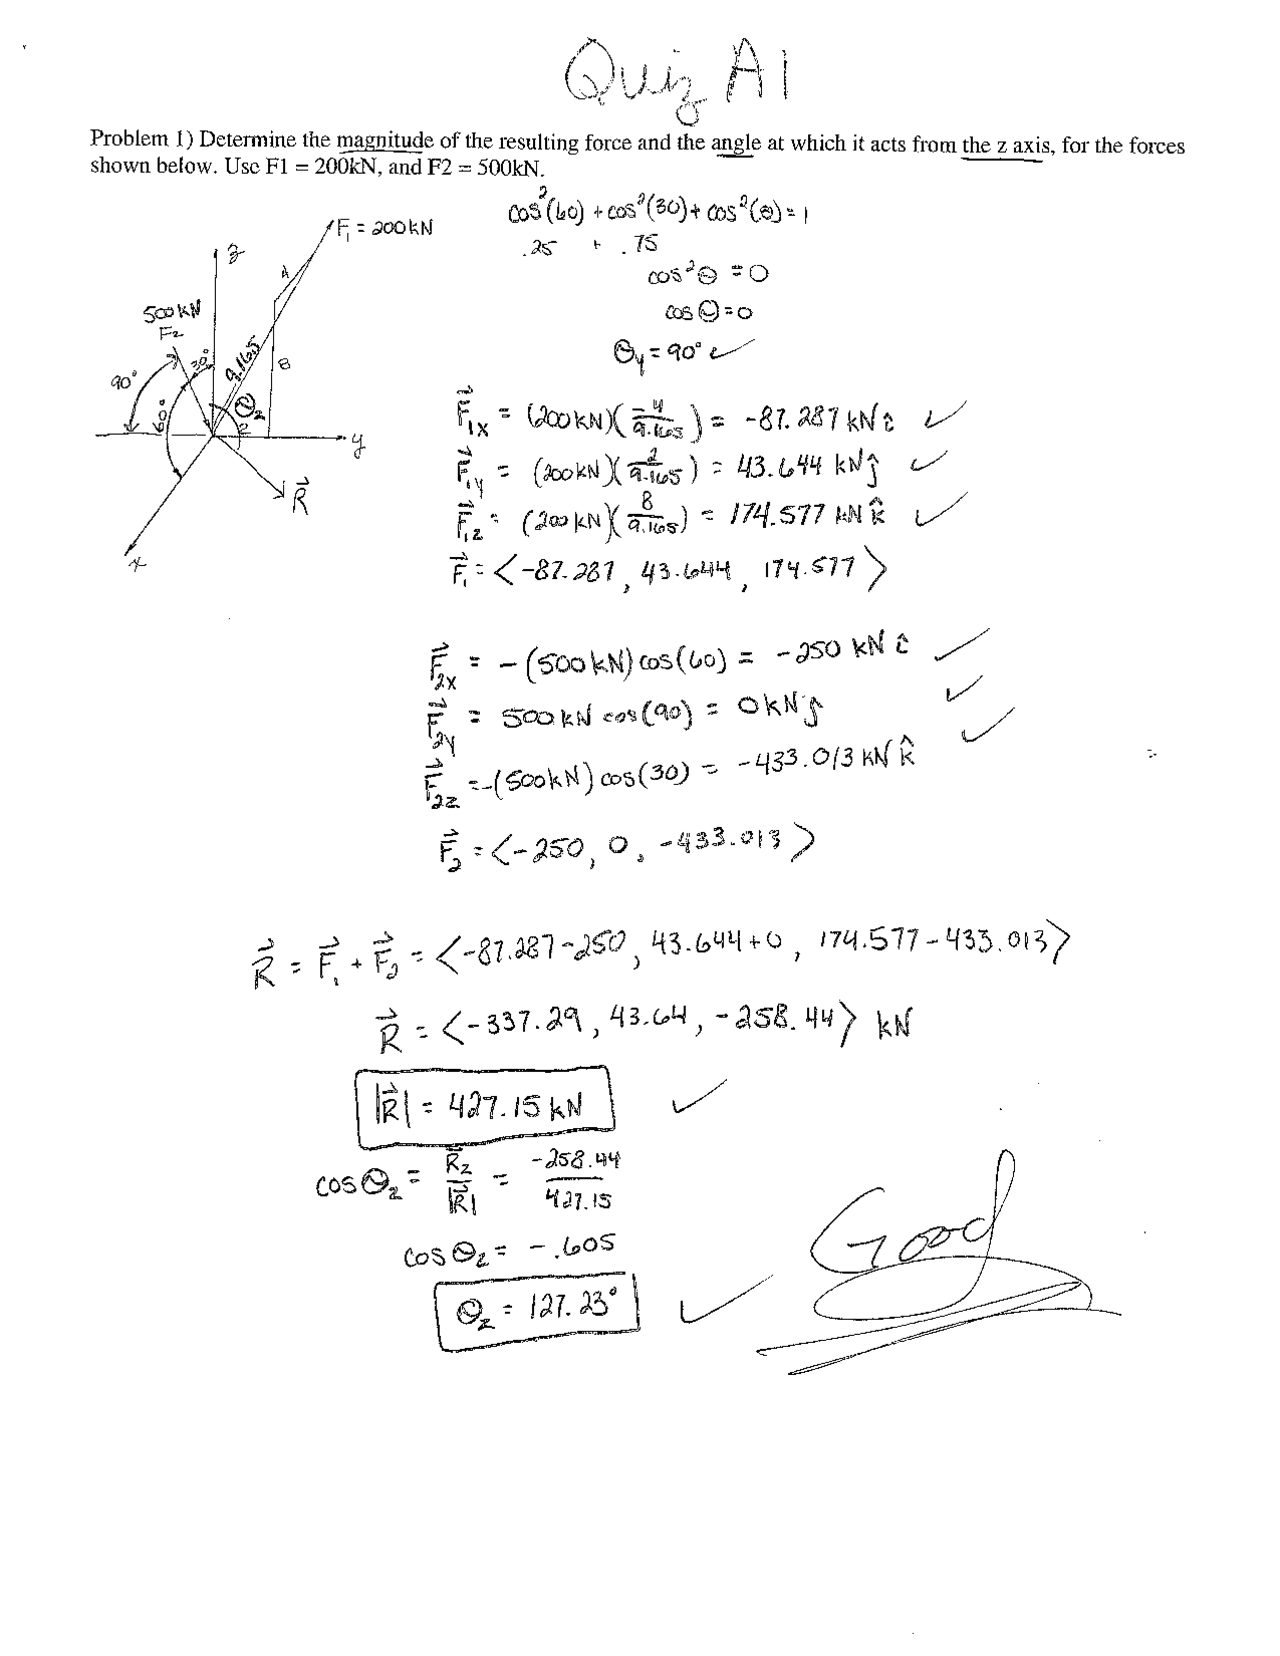 Quiz A1
Problem 1) Determine the magnitude of the resulting force and the angle at which it acts from the z axis, for the forces
shown below. Use F1 = 200kN, and F2 = 500kN.
cos²(60) + cos²(30) + cos²(θ) = 1
.25 + .75
cos²θ = 0
cosθ = 0
θy = 90° ✓
F₁ = 200kN
z
4
500kN
F₂
30°
9.165
8
90°
60°
θz
2
y
R⃗
x
F⃗₁x = (200kN)(-4/9.165) = -87.287 kN î ✓
F⃗₁y = (200kN)(2/9.165) = 43.644 kN ĵ ✓
F⃗₁z = (200kN)(8/9.165) = 174.577 kN k̂ ✓
F⃗₁ = <-87.287, 43.644, 174.577>
F⃗₂x = -(500kN)cos(60) = -250 kN î ✓
F⃗₂y = 500kN cos(90) = 0kN ĵ ✓
F⃗₂z = -(500kN)cos(30) = -433.013 kN k̂ ✓
F⃗₂ = <-250, 0, -433.013>
R⃗ = F⃗₁ + F⃗₂ = <-87.287-250, 43.644+0, 174.577-433.013>
R⃗ = <-337.29, 43.64, -258.44> kN
|R⃗| = 427.15 kN ✓
cosθz = Rz/|R⃗| = -258.44/427.15
cosθz = -.605
θz = 127.23° ✓
Good